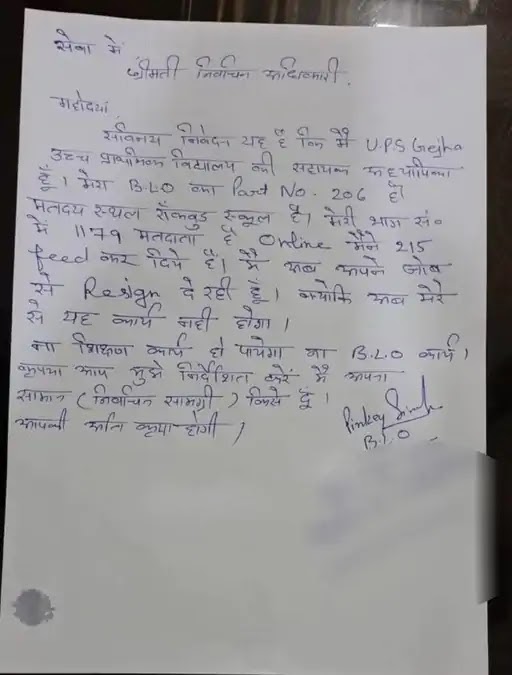 सेवा में
श्रीमती निर्वाचन अधिकारी,
महोदया
सविनय निवेदन यह है कि मैं U.P.S Gejha
उच्च प्राथमिक विद्यालय की सहायक अध्यापिका
हूँ। मेरा B.L.O का Part No. 206 है।
मतदय स्थल रॉकवुड स्कूल है। मेरी भाग सं०
में 1179 मतदाता है Online मैंने 215
feed कर दिये हैं। मैं अब अपने जोब
से Resign दे रही हूँ। क्योकि अब मेरे
से यह कार्य नही होगा।
ना शिक्षण कार्य हो पायेगा ना B.L.O कार्य।
कृपया आप मुझे निर्देशित करें मैं अपना
सामान (निर्वाचन सामग्री) किसे दूँ।
आपकी अति कृपा होगी।
Pinkey Singh
B.L.O